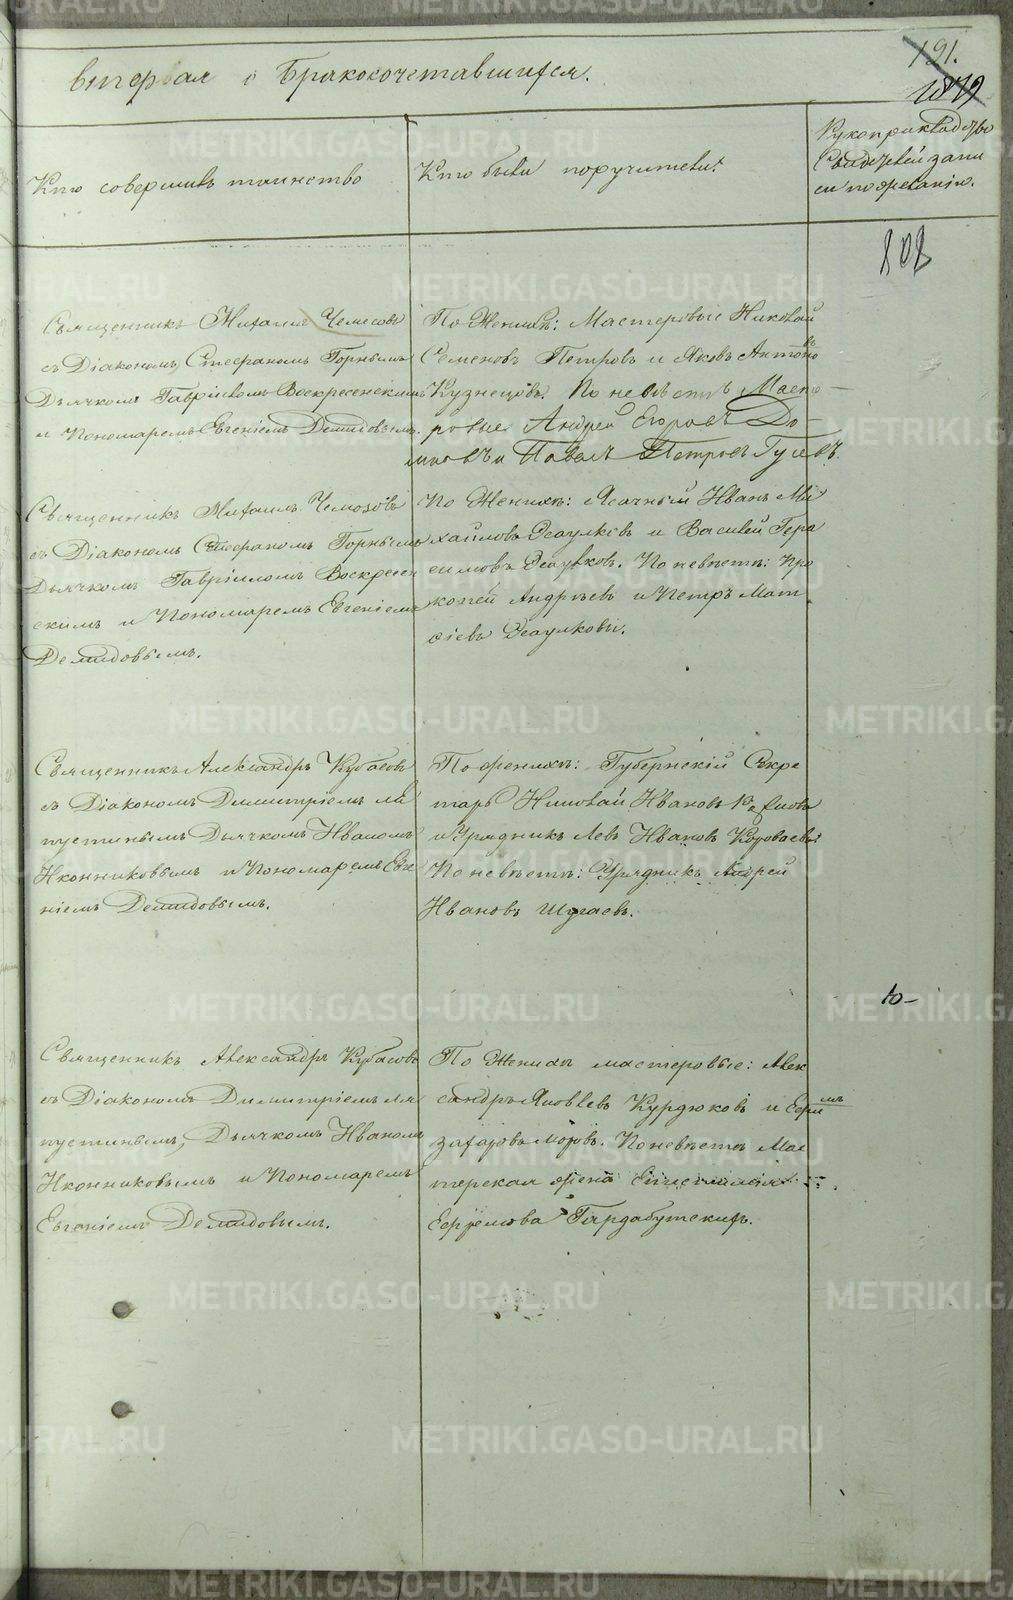 вторая о бракосочетавшихся.
191.
Кто совершилъ таинство
Кто были поручители.
Рукоприкладство
Свидѣтелей запи
си по желанію.
808
Священникъ Михаилъ Чемесовъ
съ Діакономъ Стефаномъ Горнымъ
Дьячкомъ Гавріиломъ Воскресенскимъ
и Пономаремъ Евгеніемъ Демидовымъ.
По Женихѣ: Мастеровые Николай
Семеновъ Петровъ и Яковъ Антоновъ
Кузнецовъ. По невѣстѣ Масте-
ровые Андрей Егоровъ До-
и Павелъ Петровъ Гусевъ.
Священникъ Михаилъ Чемесовъ
съ Діакономъ Стефаномъ Горнымъ
Дьячкомъ Гавріиломъ Воскресен
скимъ и Пономаремъ Евгеніемъ
Демидовымъ.
По Женихѣ: Ясачный Иванъ Ми
хайловъ Есаулковъ и Василей Гера
симовъ Есаулковъ. По невѣстѣ: Про
копей Андрѣевъ и Петръ Мат
ѳіевъ Есаулковы.
Священникъ Александръ Кубасовъ
съ Діакономъ Димитріемъ Ля
пустинымъ Дьячкомъ Иваномъ
Иконниковымъ и Пономаремъ Евге
ніемъ Демидовымъ.
По женихѣ: Губернскій Секре
тарь Николай Ивановъ
и Урядникъ Левъ Ивановъ Короваевъ
По невѣстѣ: Урядникъ Андрей
Ивановъ Шугаевъ.
Священникъ Александръ Кубасовъ
съ Діакономъ Димитріемъ Ля
пустинымъ, Дьячкомъ Иваномъ
Иконниковымъ и Пономаремъ
Евгеніемъ Демидовымъ.
По Женихѣ мастеровые: Алек
сандръ Яковлевъ Курдюковъ и Ефимъ
Захаровъ Моровъ. По невѣстѣ Мас
терская жена
Ефремова
METRIKI.GASO-URAL.RU